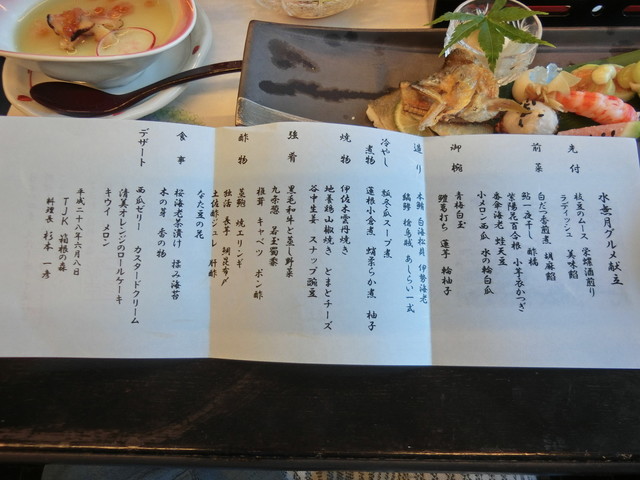 水無月グルメ献立
先付
枝豆のムース 栄螺酒煎り
ラディッシュ 美味餡
前菜
白だつ香煎煮 胡麻餡
鮎一夜干し 酢橘
紫陽花百合根 小芋衣かつぎ
番傘海老 蛙天豆
小メロン西瓜 水の輪白瓜
御椀
青梅白玉
鱧葛打ち 蓮芋 輪柚子
造り
本鮪 白海松貝 伊勢海老
縞鯵 あしらい一式
冷やし煮物
瓢冬瓜スープ煮
蓮根小倉煮 蛸柔らか煮 柚子
焼物
伊佐木雲丹焼き
地養鶏山椒焼き とまとチーズ
谷中生姜 スナップ豌豆
強肴
黒毛和牛と蒸し野菜
九条葱 若玉蜀黍
椎茸 キャベツ ポン酢
酢物
蒸鮑 焼エリンギ
独活 長芋
土佐酢ジュレ 肝酢
なた豆の花
食事
桜海老茶漬け 揉み海苔
木の芽 香の物
デザート
西瓜ゼリー カスタードクリーム
清美オレンジのロールケーキ
キウイ メロン
平成二十八年六月八日
TJK 箱根の森
料理長 杉本 一彦